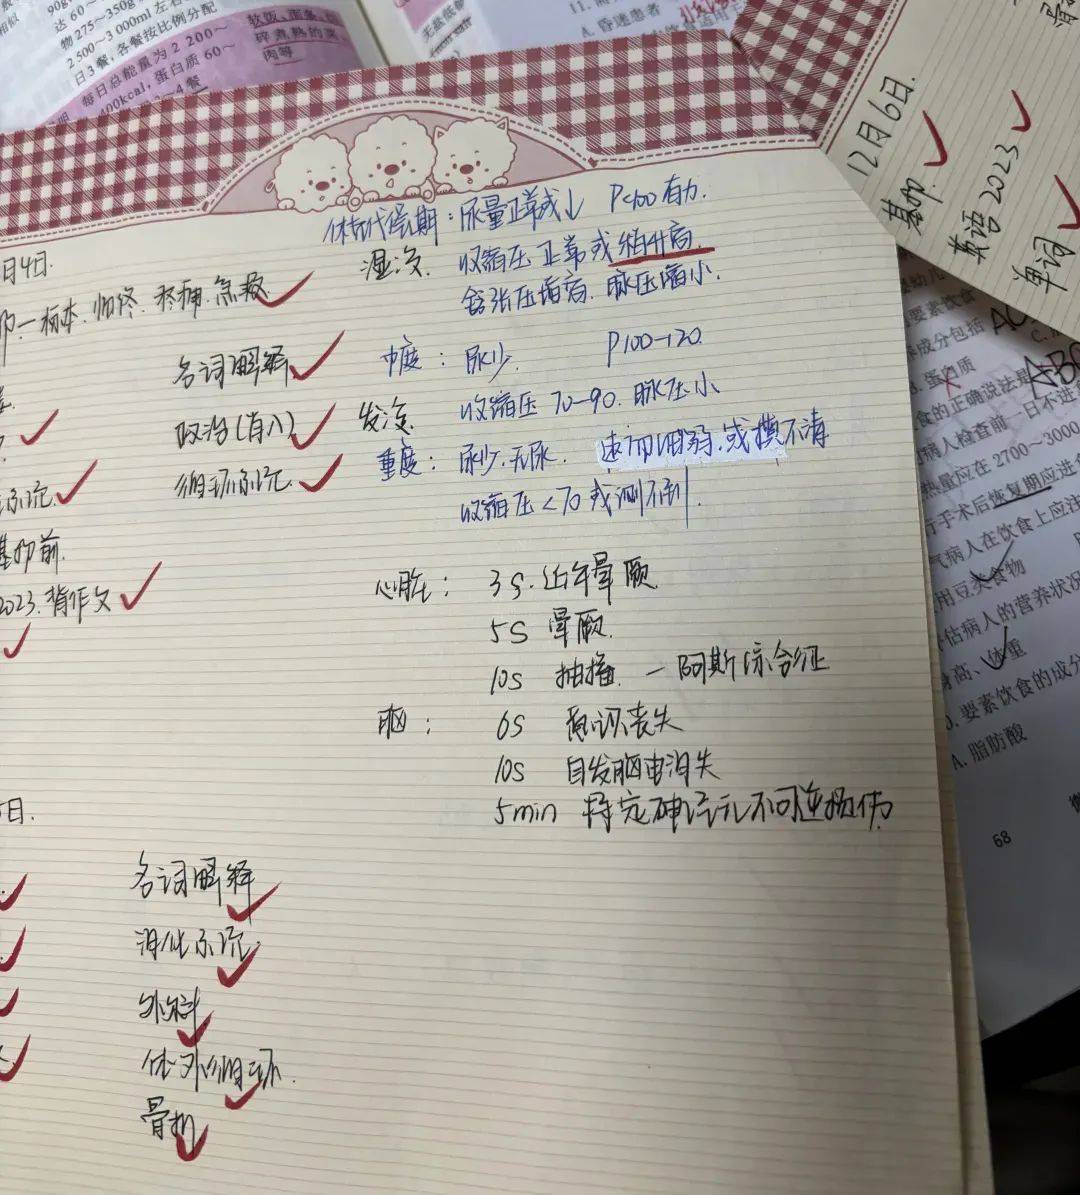 90g
达 60～
物 275～350g
2 500～3 000ml 左右
日 3 餐，各餐按比例分配
每日总能量为 2 200～
400kcal，蛋白质 60～
4 餐
软饭、面条、
碎煮熟的菜、
肉等
无盐低
11.
A. 昏迷患者
12月6日.
基护
英语2023
单词
休克代偿期：尿量正常或↓ P<100有力.
湿冷. 收缩压正常或稍升高.
舒张压增高. 脉压缩小.
中度：尿少. P100-120.
发凉 收缩压 70-90. 脉压小
重度：尿少.无尿. 速而细弱.或摸不清
收缩压<70或测不到.
心脏：3s.近乎晕厥.
5s 晕厥.
10s 抽搐. — 阿斯综合征
脑：6s 意识丧失
10s 自发脑电消失
5min 特定神经元不可逆损伤.
月4日.
名词解释.
政治(背八)
循环系统.
基护前.
2023.背作文
5日.
名词解释
消化系统.
外科
体外循环.
骨折
要素饮食
成分包括
蛋白质
食的正确说法是
病人检查前一日不进
热量应在 2700～3000
行手术后恢复期应进
气病人在饮食上应注
用豆类食物
估病人的营养状况
身高、体重
要素饮食的成分
A. 脂肪酸
68